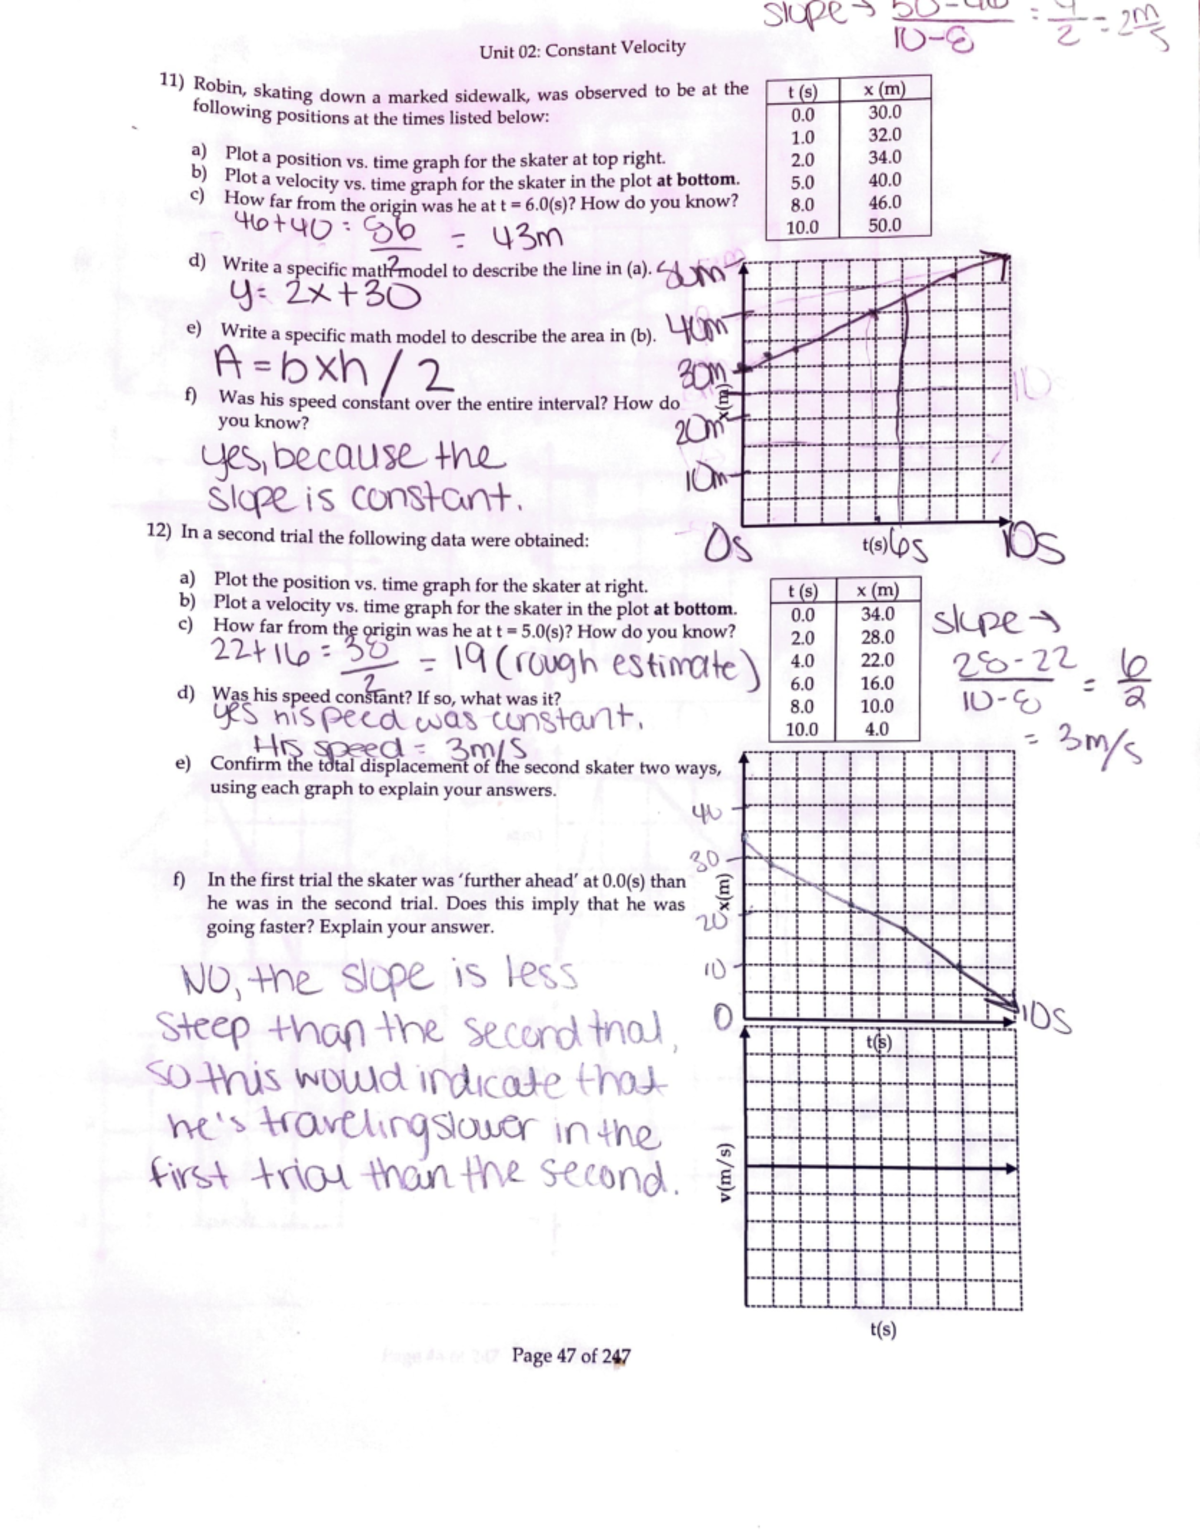 slope → 50-46 / 10-8 = 4/2 = 2m/s
Unit 02: Constant Velocity
11) Robin, skating down a marked sidewalk, was observed to be at the
following positions at the times listed below:
t (s) x (m)
0.0 30.0
1.0 32.0
2.0 34.0
5.0 40.0
8.0 46.0
10.0 50.0
a) Plot a position vs. time graph for the skater at top right.
b) Plot a velocity vs. time graph for the skater in the plot at bottom.
c) How far from the origin was he at t = 6.0(s)? How do you know?
46+40 = 86 / 2 = 43m
d) Write a specific math model to describe the line in (a).
y = 2x+30
e) Write a specific math model to describe the area in (b).
A = bxh / 2
f) Was his speed constant over the entire interval? How do
you know?
yes, because the
slope is constant.
50m
40m
30m
x(m)
20m
10m
0s
t(s)
6s
10s
12) In a second trial the following data were obtained:
a) Plot the position vs. time graph for the skater at right.
b) Plot a velocity vs. time graph for the skater in the plot at bottom.
c) How far from the origin was he at t = 5.0(s)? How do you know?
22+16 = 38 / 2 = 19 (rough estimate)
d) Was his speed constant? If so, what was it?
yes his peed was constant.
His speed = 3m/s
e) Confirm the total displacement of the second skater two ways,
using each graph to explain your answers.
t (s) x (m)
0.0 34.0
2.0 28.0
4.0 22.0
6.0 16.0
8.0 10.0
10.0 4.0
slope →
28-22 / 10-8 = 6/2
= 3m/s
f) In the first trial the skater was 'further ahead' at 0.0(s) than
he was in the second trial. Does this imply that he was
going faster? Explain your answer.
No, the slope is less
steep than the second trial,
so this would indicate that
he's traveling slower in the
first trial than the second.
40
30
x(m)
20
10
0
10s
t(s)
v(m/s)
t(s)
Page 47 of 247